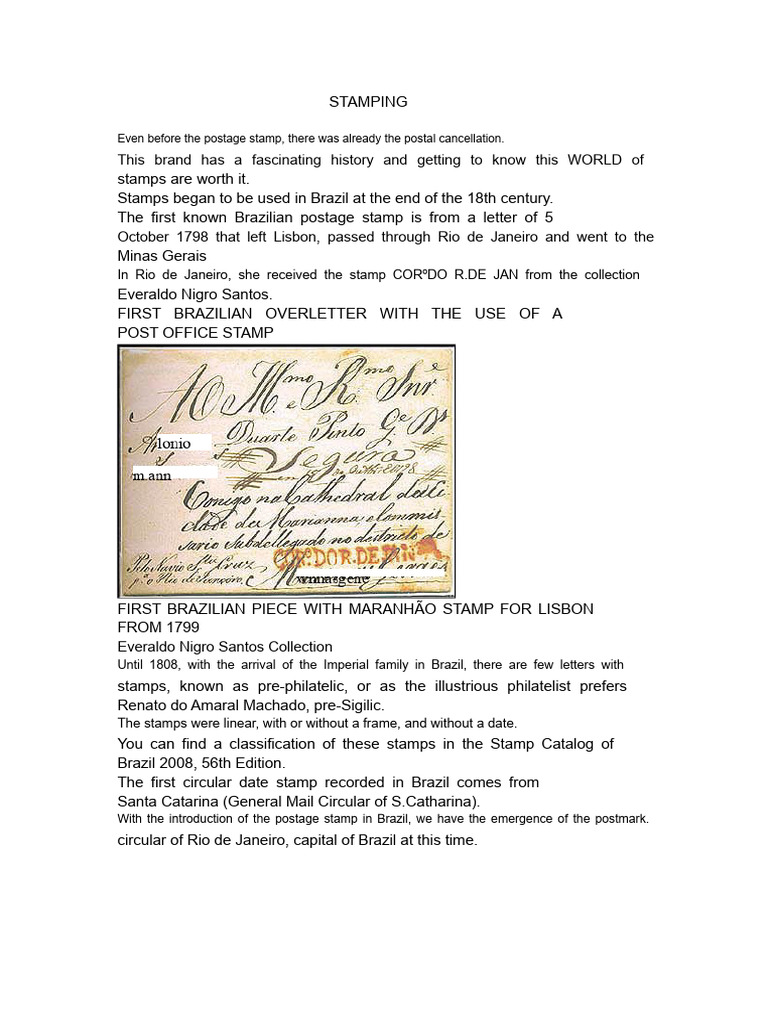 STAMPING
Even before the postage stamp, there was already the postal cancellation.
This brand has a fascinating history and getting to know this WORLD of
stamps are worth it.
Stamps began to be used in Brazil at the end of the 18th century.
The first known Brazilian postage stamp is from a letter of 5
October 1798 that left Lisbon, passed through Rio de Janeiro and went to the
Minas Gerais
In Rio de Janeiro, she received the stamp CORºDO R.DE JAN from the collection
Everaldo Nigro Santos.
FIRST BRAZILIAN OVERLETTER WITH THE USE OF A
POST OFFICE STAMP
AO M.mo e R.mo Snr.e
Duarte Pinto G.e
lonio
Segura
m.ann
Conigo na Cathedral da Ci-
dade de Marianna, e Commis-
sario Subdellegado no districto de
COR.º DO R. DE
wnnasgene
FIRST BRAZILIAN PIECE WITH MARANHÃO STAMP FOR LISBON
FROM 1799
Everaldo Nigro Santos Collection
Until 1808, with the arrival of the Imperial family in Brazil, there are few letters with
stamps, known as pre-philatelic, or as the illustrious philatelist prefers
Renato do Amaral Machado, pre-Sigilic.
The stamps were linear, with or without a frame, and without a date.
You can find a classification of these stamps in the Stamp Catalog of
Brazil 2008, 56th Edition.
The first circular date stamp recorded in Brazil comes from
Santa Catarina (General Mail Circular of S.Catharina).
With the introduction of the postage stamp in Brazil, we have the emergence of the postmark.
circular of Rio de Janeiro, capital of Brazil at this time.